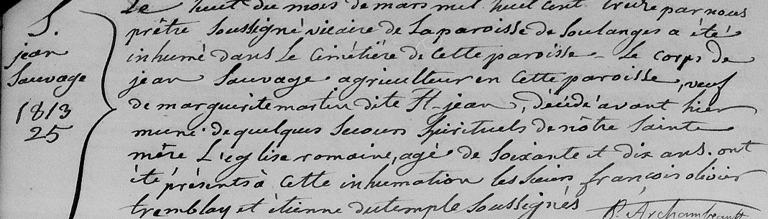 S.
jean
Sauvage
1813
25
Le huit du mois de mars mil huit cent treize par nous
prêtre Soussigné vicaire de La paroisse de Soulanges a été
inhumé dans Le Cimétière de Cette paroisse - Le corps de
jean Sauvage agriculteur en Cette paroisse, veuf
de marguerite martin dite St-jean, décédé avant hier
muni de quelques Secours Spirituels de nôtre Sainte
mère L'eglise romaine, agé de Soixante et dix ans. ont
été présents à Cette inhumation les sieurs françois olivier
tremblay et étienne dutemple Soussignés
P. Archambault